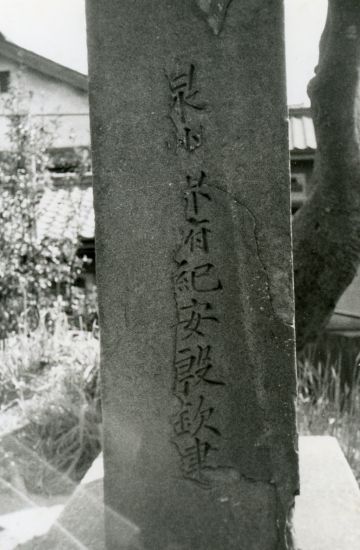 泉州 府紀安殷欽建